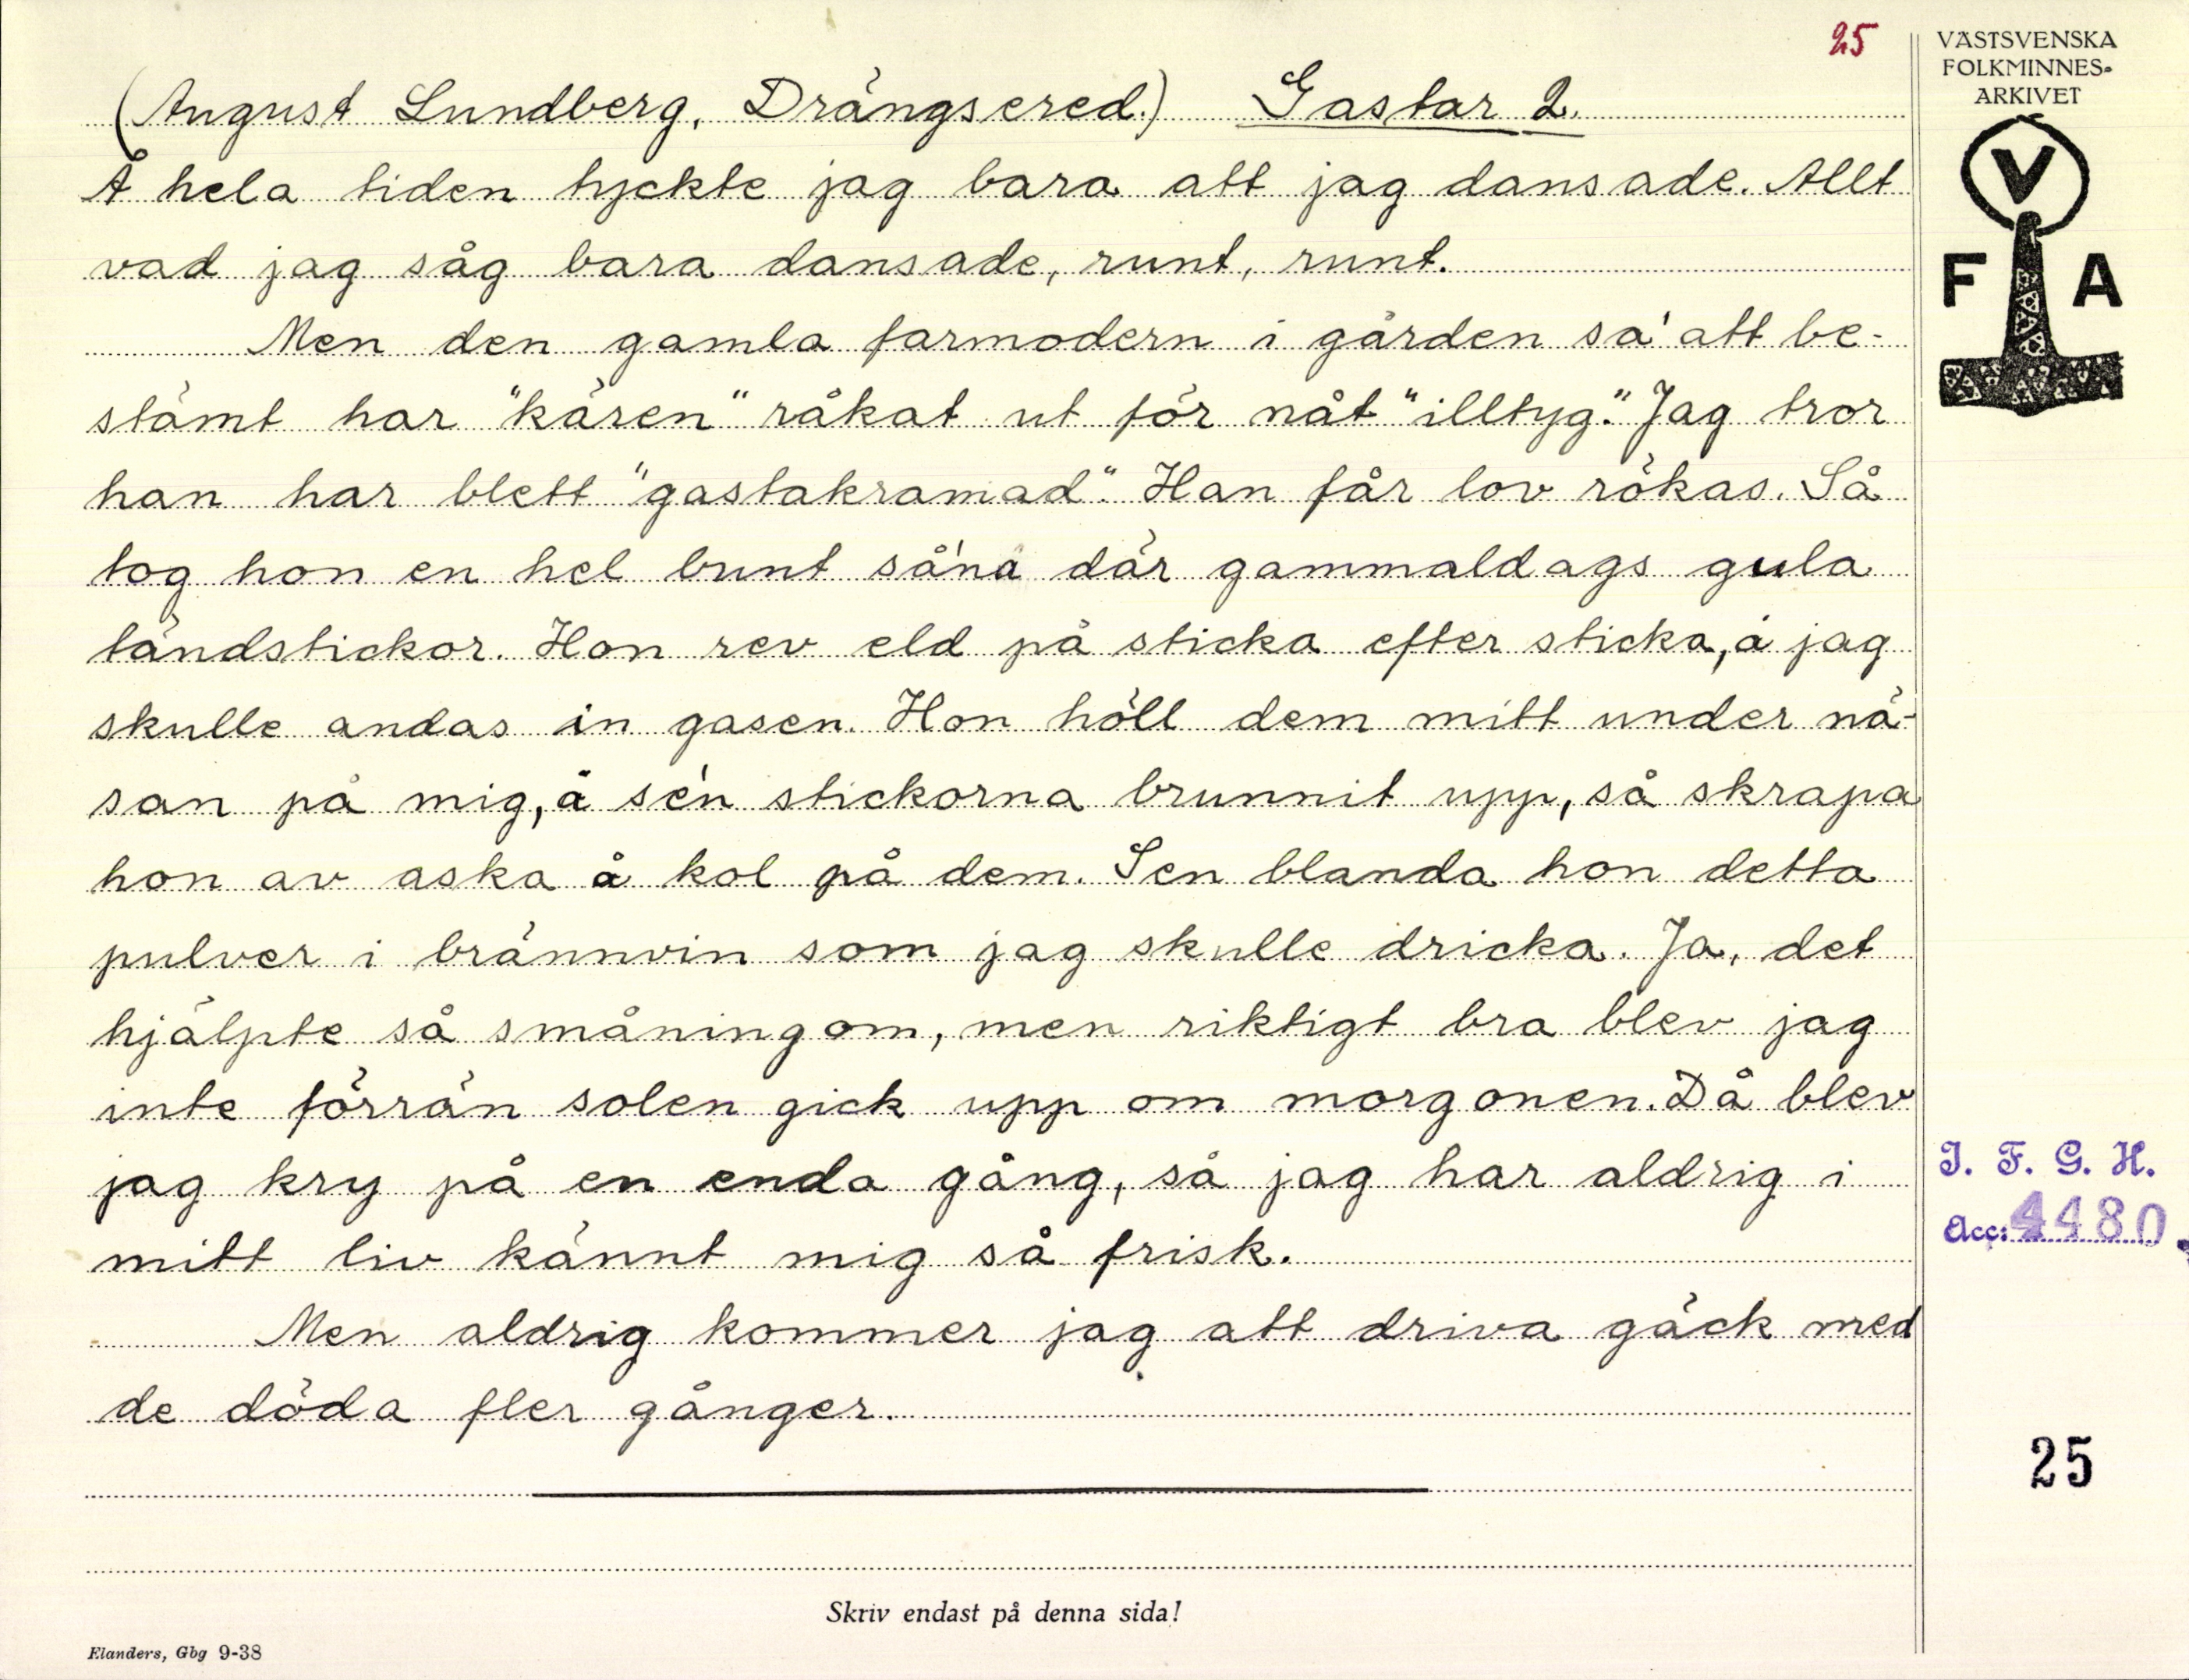 25
VÄSTSVENSKA
FOLKMINNES-
ARKIVET
V
F A
(August Lundberg, Drängsered.) Gastar 2.
Å hela tiden tyckte jag bara att jag dansade. Allt
vad jag såg bara dansade, runt, runt.
Men den gamla farmodern i gården sa' att be-
stämt har "kären" råkat ut för nåt "illtyg". Jag tror
han har blett "gastakramad". Han får lov rökas. Så
tog hon en hel bunt så'na där gammaldags gula
tändstickor. Hon rev eld på sticka efter sticka, å jag
skulle andas in gasen. Hon höll dem mitt under nä-
san på mig, å se'n stickorna brunnit upp, så skrapa
hon av aska å kol på dem. Sen blanda hon detta
pulver i brännvin som jag skulle dricka. Ja, det
hjälpte så småningom, men riktigt bra blev jag
inte förrän solen gick upp om morgonen. Då blev
jag kry på en enda gång, så jag har aldrig i
mitt liv kännt mig så frisk.
Men aldrig kommer jag att driva gäck med
de döda fler gånger.
I. F. G. H.
Acc: 4480
25
Skriv endast på denna sida!
Elanders, Gbg 9-38